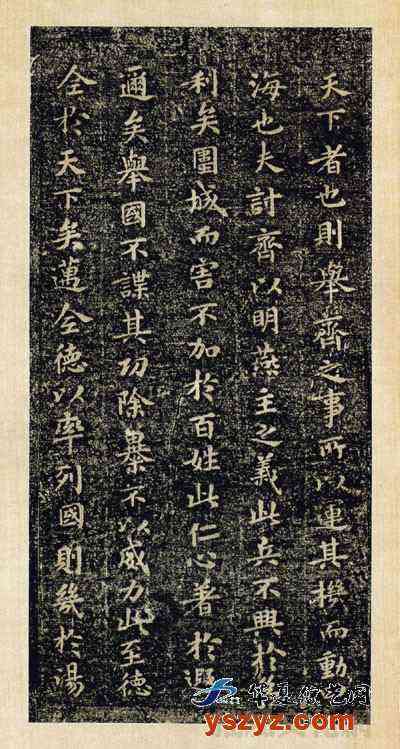 天下者也則舉齊之事所以運其機而動四
海也夫討齊以明燕主之義此兵不興於為
利矣圍城而害不加於百姓此仁心著於遐
邇矣舉國不謀其功除暴不以威力此至德
全於天下矣邁全德以率列國則幾於湯
华夏艺网
yszyz.com